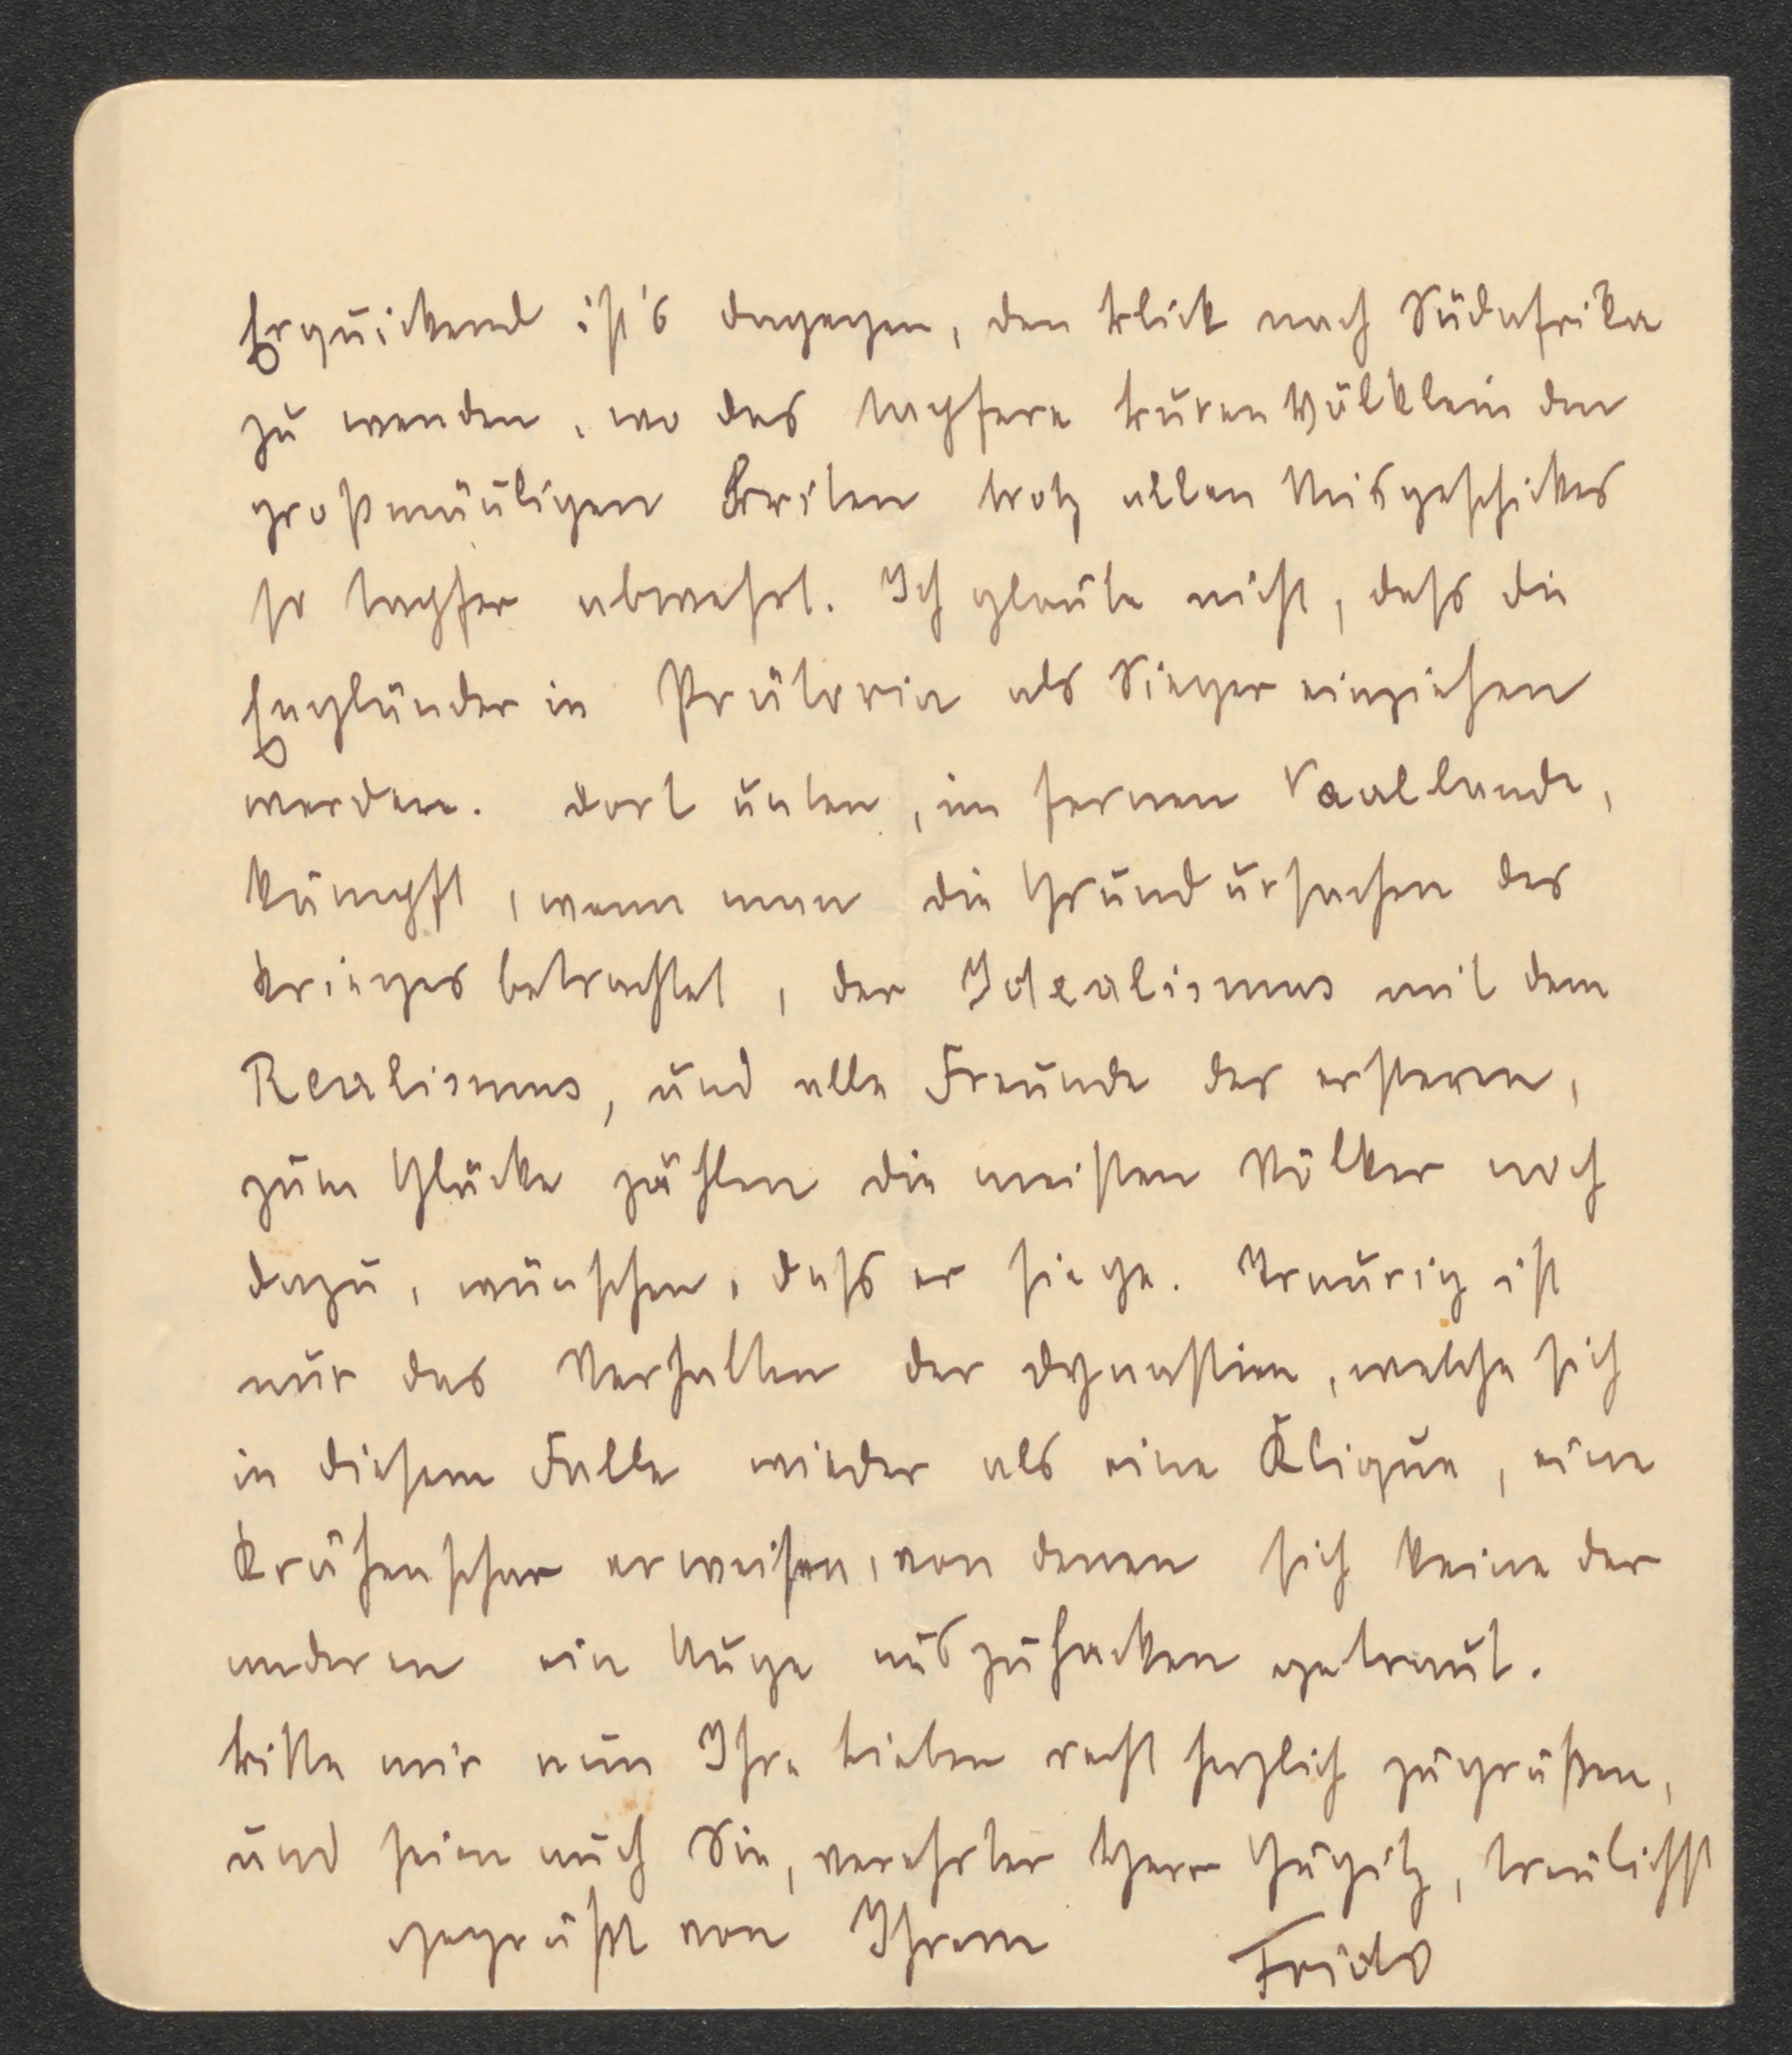 Erquickend ist's dagegen, den Blick nach Südafrika
zu wenden, wo das tapfere Buren Völklein den
großmäuligen Briten trotz allen Misgeschickes
so tapfer abwehrt. Ich glaube nicht, dass die
Engländer in Prätoria als Sieger einziehen
werden. Dort unten, im fernen Vaallande,
kämpft, wenn man die Grundursachen des
Krieges betrachtet, der Idealismus mit dem
Realismus, und alle Freunde des ersteren,
zum Glücke zählen die meisten Völker noch
dazu, wünschen, dass er siege. Traurig ist
nur das Verhalten der Dynastien, welche sich
in diesem Falle wieder als eine Klique, eine
Krähenschar erweisen, von denen sich keine der
anderen ein Auge auszuhacken getraut.
Bitte mir nun Ihre Lieben recht herzlich zu grüßen,
und seien auch Sie, verehrter Herr Gugitz, treulichst
gegrüßt von Ihrem Frido